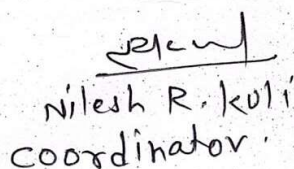 Nilesh R. Koli
coordinator.